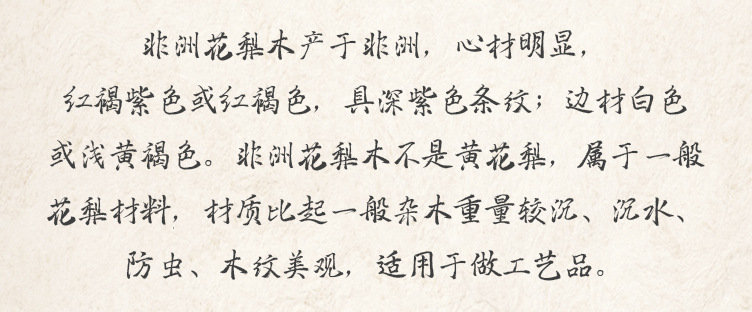 非洲花梨木产于非洲，心材明显，
红褐紫色或红褐色，具深紫色条纹；边材白色
或浅黄褐色。非洲花梨木不是黄花梨，属于一般
花梨材料，材质比起一般杂木重量较沉、沉水、
防虫、木纹美观，适用于做工艺品。